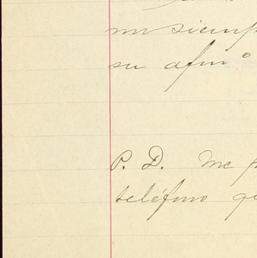 mi siemp
su afmo
P. D. Me p
teléfono qu